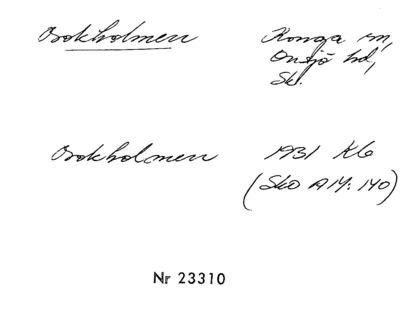 Bokholmen Konga sn,
Onsjö hd,
Sk.
Bokholmen 1931 Kb
(Sko A14: 140)
Nr 23310